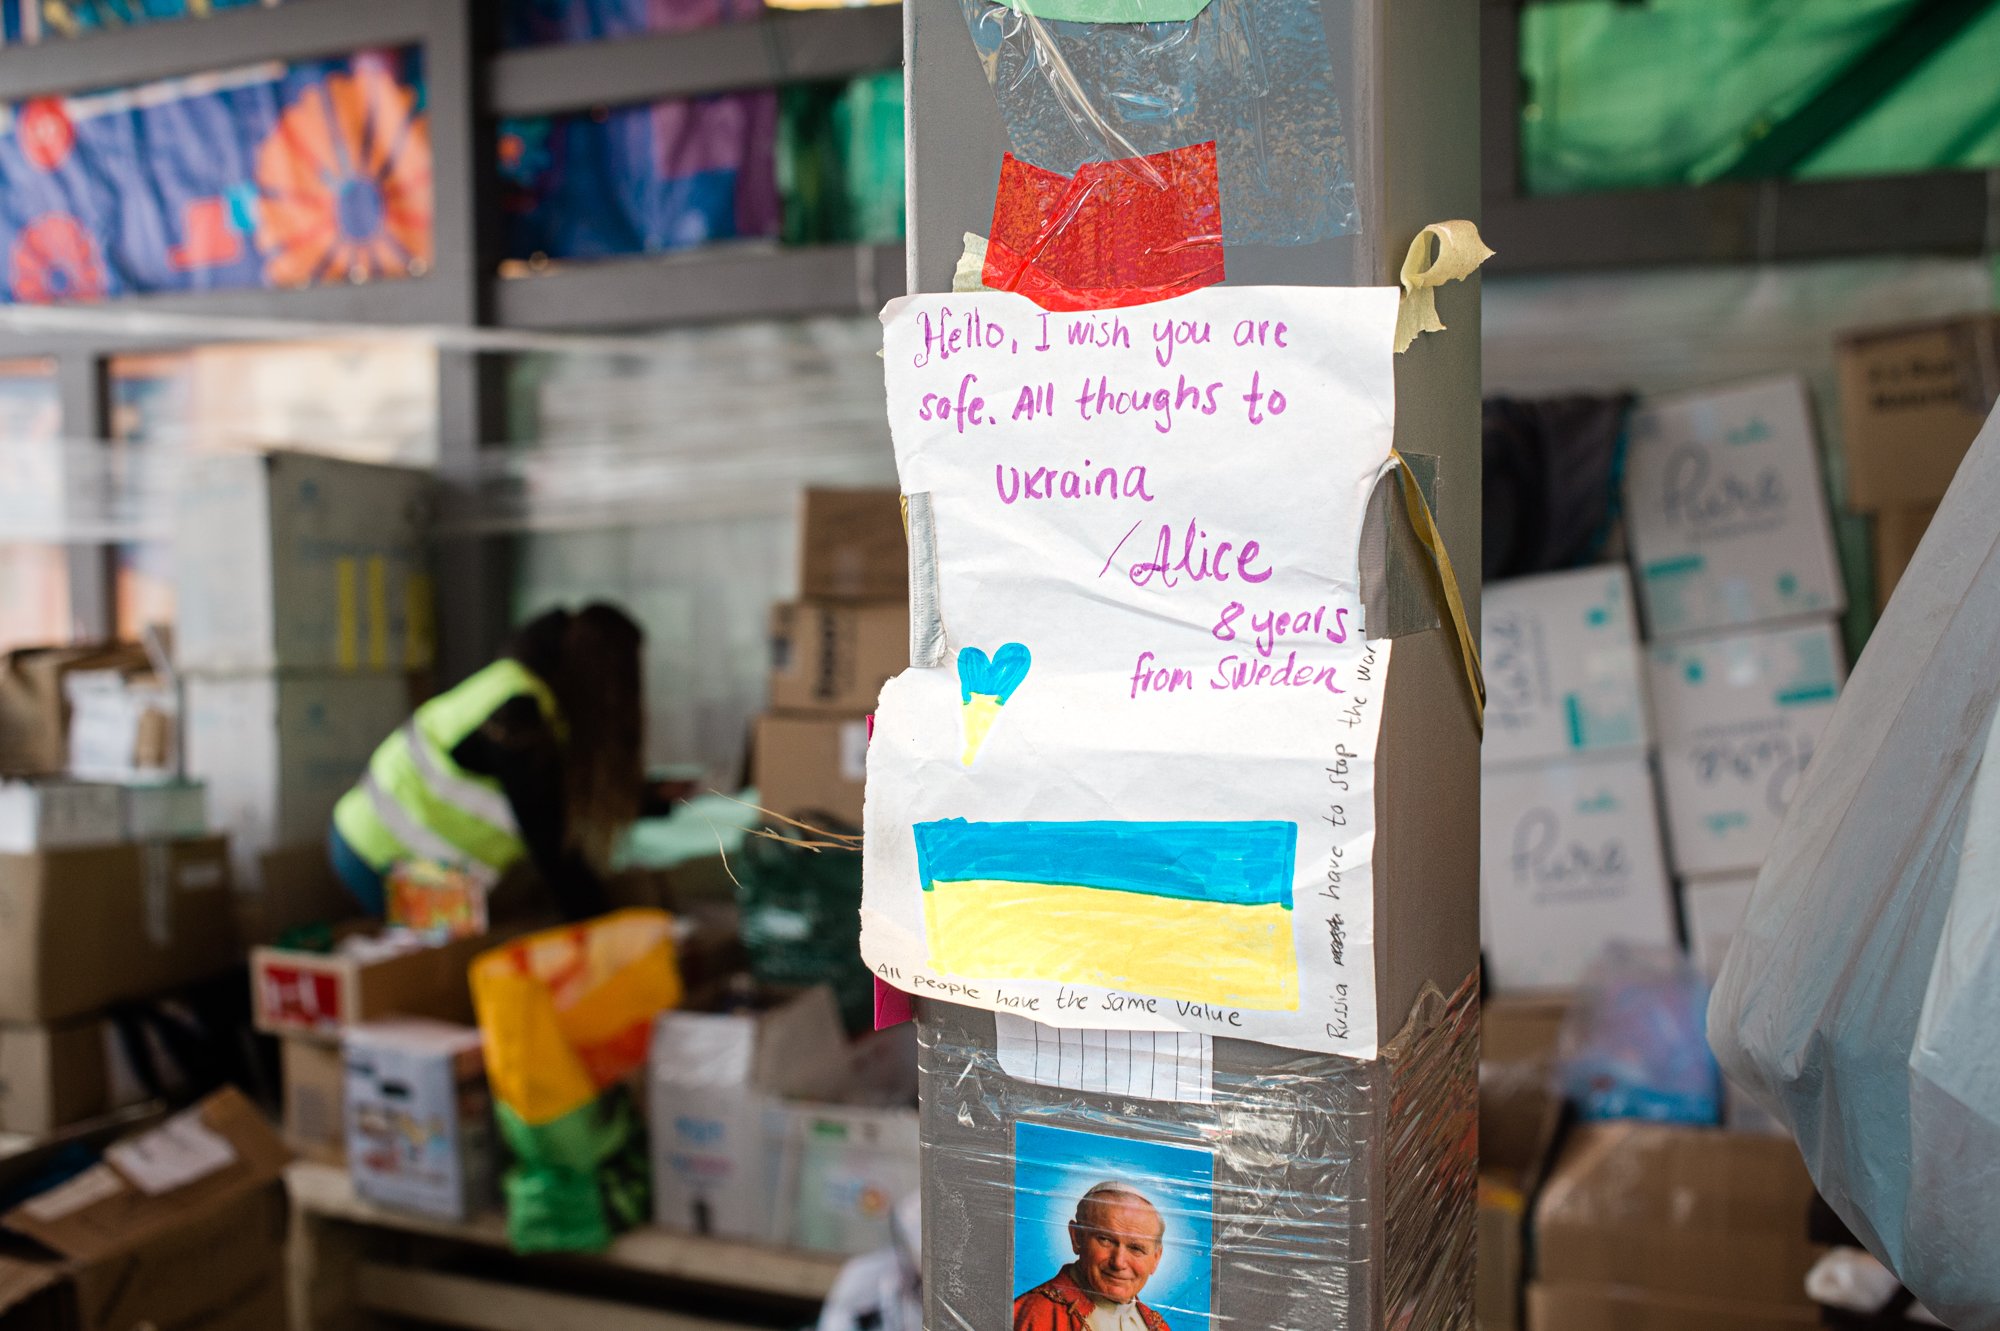 Hello, I wish you are
safe. All thoughs to
Ukraina
/Alice
8 years
from Sweden
Russia have to stop the war!
All people have the same value
Pure
Pure
Pure